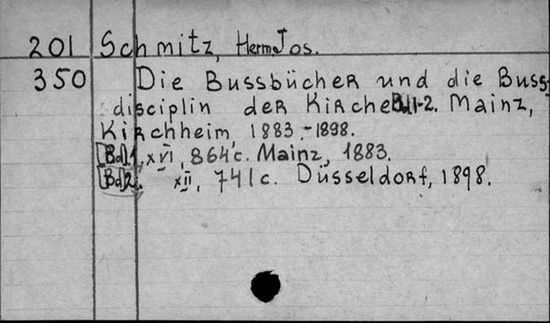 201 Schmitz, Herm. Jos.
350 Die Bussbücher und die Buss-
disciplin der Kirche Bd 1-2. Mainz,
Kirchheim, 1883.-1898.
[Bd] 1. XVI, 864 c. Mainz, 1883.
[Bd] 2. XII, 741 c. Düsseldorf, 1898.